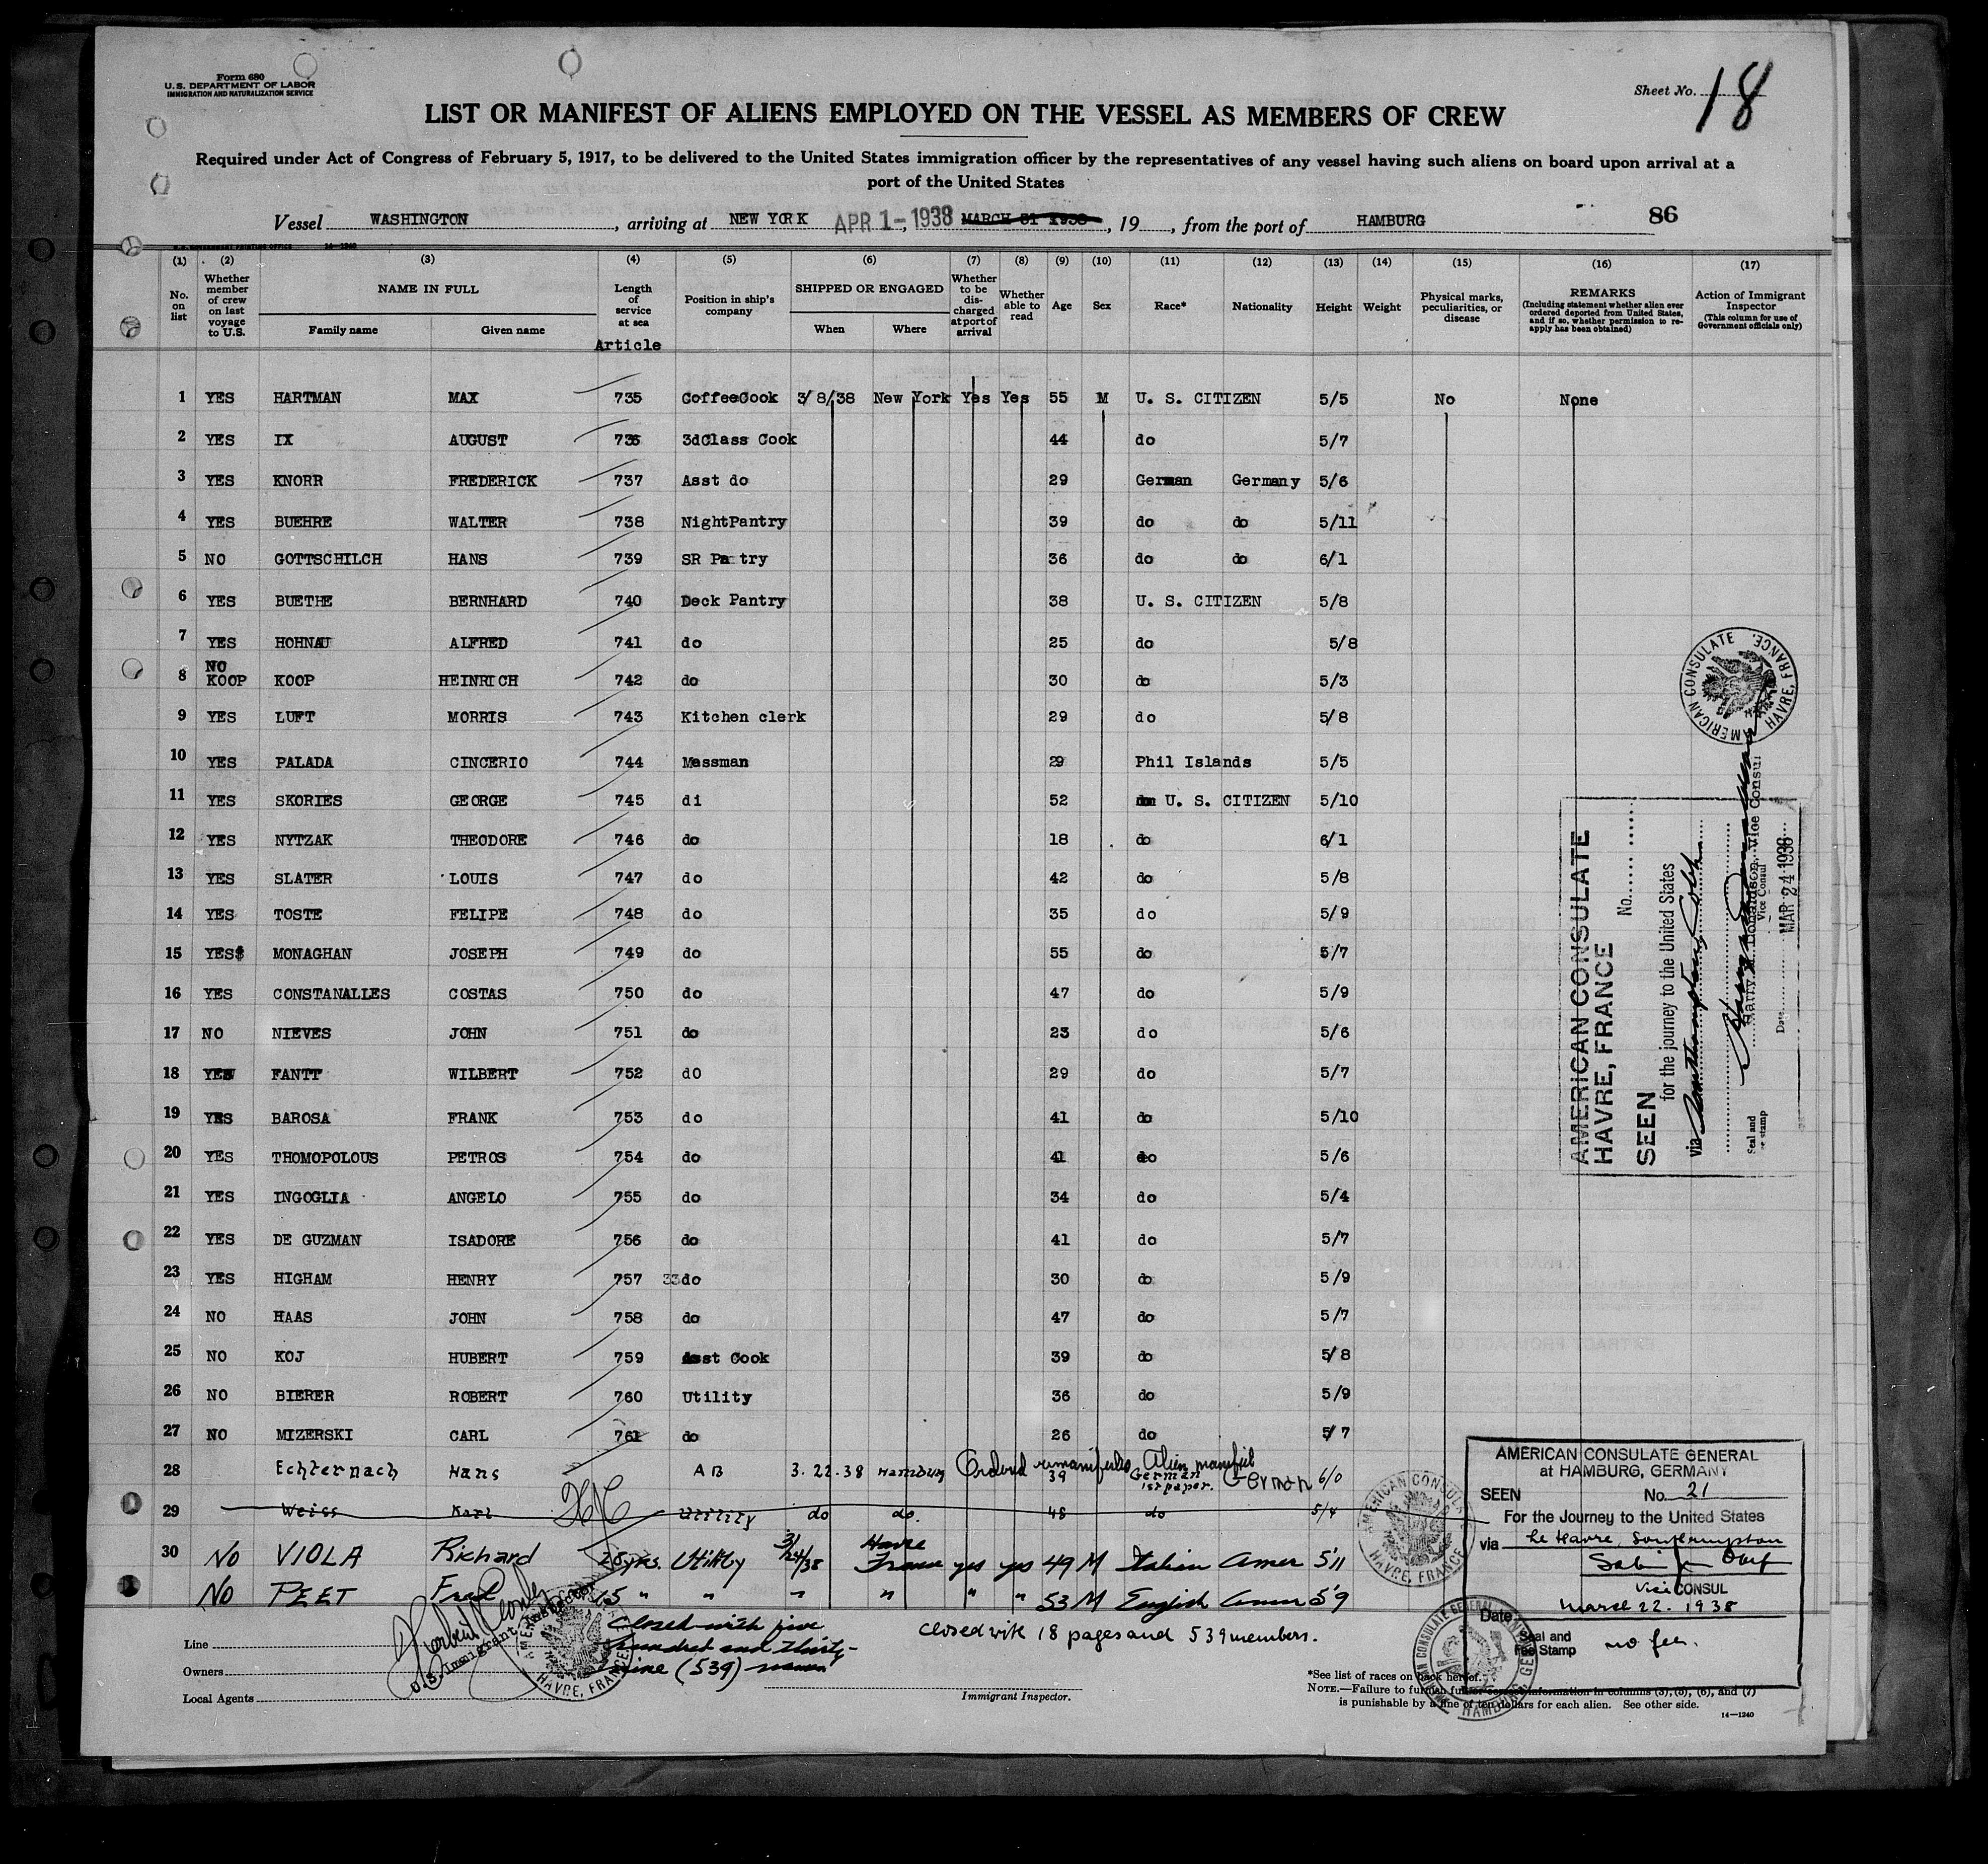 Form 680
U.S. DEPARTMENT OF LABOR
IMMIGRATION AND NATURALIZATION SERVICE
Sheet No. 18
LIST OR MANIFEST OF ALIENS EMPLOYED ON THE VESSEL AS MEMBERS OF CREW
Required under Act of Congress of February 5, 1917, to be delivered to the United States immigration officer by the representatives of any vessel having such aliens on board upon arrival at a
port of the United States
Vessel WASHINGTON, arriving at NEW YORK APR 1-1938, MARCH 31 1938, 19, from the port of HAMBURG 86
U.S. GOVERNMENT PRINTING OFFICE 14-1240
(1) (2) (3) (4) (5) (6) (7) (8) (9) (10) (11) (12) (13) (14) (15) (16) (17)
No. on list
Whether member of crew on last voyage to U.S.
NAME IN FULL
Family name Given name
Length of service at sea
Article
Position in ship's company
SHIPPED OR ENGAGED
When Where
Whether to be discharged at port of arrival
Whether able to read
Age Sex Race* Nationality Height Weight
Physical marks, peculiarities, or disease
REMARKS
(Including statement whether alien ever ordered deported from United States, and if so, whether permission to reapply has been obtained)
Action of Immigrant Inspector
(This column for use of Government officials only)
1 YES HARTMAN MAX 735 CoffeeCook 3/8/38 New York Yes Yes 55 M U. S. CITIZEN 5/5 No None
2 YES IX AUGUST 736 3dClass Cook 44 do 5/7
3 YES KNORR FREDERICK 737 Asst do 29 German Germany 5/6
4 YES BUEHRE WALTER 738 NightPantry 39 do do 5/11
5 NO GOTTSCHILCH HANS 739 SR Pa try 36 do do 6/1
6 YES BUETHE BERNHARD 740 Deck Pantry 38 U. S. CITIZEN 5/8
7 YES HOHNAU ALFRED 741 do 25 do 5/8
8 NO KOOP KOOP HEINRICH 742 do 30 do 5/3
9 YES LUFT MORRIS 743 Kitchen clerk 29 do 5/8
10 YES PALADA CINCERIO 744 Messman 29 Phil Islands 5/5
11 YES SKORIES GEORGE 745 di 52 U. S. CITIZEN 5/10
12 YES NYTZAK THEODORE 746 do 18 do 6/1
13 YES SLATER LOUIS 747 do 42 do 5/8
14 YES TOSTE FELIPE 748 do 35 do 5/9
15 YES MONAGHAN JOSEPH 749 do 55 do 5/7
16 YES CONSTANALLES COSTAS 750 do 47 do 5/9
17 NO NIEVES JOHN 751 do 23 do 5/6
18 YES FANTT WILBERT 752 dO 29 do 5/7
19 YES BAROSA FRANK 753 do 41 do 5/10
20 YES THOMOPOLOUS PETROS 754 do 41 do 5/6
21 YES INGOGLIA ANGELO 755 do 34 do 5/4
22 YES DE GUZMAN ISADORE 756 do 41 do 5/7
23 YES HIGHAM HENRY 757 33do 30 do 5/9
24 NO HAAS JOHN 758 do 47 do 5/7
25 NO KOJ HUBERT 759 Asst Cook 39 do 5/8
26 NO BIERER ROBERT 760 Utility 36 do 5/9
27 NO MIZERSKI CARL 761 do 26 do 5/7
28 Echternach Hans AB 3.22.38 Hamburg Ordered Alien manifest 39 German 1st paper. German 6/0
29 Weiss Karl Utility do do. 48 do 5/4
30 No VIOLA Richard 25 yrs. Utility 3/24/38 Havre France yes yes 49 M Italian Amer 5'11
No PEET Fred 15 " " " " " " 53 M English Amer 5'9
Closed with five
hundred and thirty-
nine (539)
Closed with 18 pages and 539 members.
U.S. Immigrant Inspector
Line
Owners
Local Agents
Immigrant Inspector.
*See list of races on back hereof.
NOTE.—Failure to furnish full or correct information in columns (3), (5), (6), and (7)
is punishable by a fine of ten dollars for each alien. See other side.
14—1240
AMERICAN CONSULATE HAVRE, FRANCE.
AMERICAN CONSULATE
HAVRE, FRANCE
No.
SEEN
for the journey to the United States
via Southampton, Cobh
Harry M. Donaldson, Vice Consul
Vice Consul
Date MAR 24 1938
Seal and
Fee stamp
AMERICAN CONSULATE HAVRE, FRANCE
AMERICAN CONSULATE GENERAL
at HAMBURG, GERMANY
SEEN No. 21
For the Journey to the United States
via Le Havre, Southampton
Vice CONSUL
Date March 22. 1938
Seal and
Fee Stamp no fee.
AMERICAN CONSULATE GENERAL HAMBURG, GERMANY
HAVRE, FRANCE